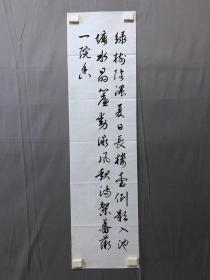 绿树阴浓夏日长楼台倒影入池
塘水晶簾动微风起满架蔷薇
一院香